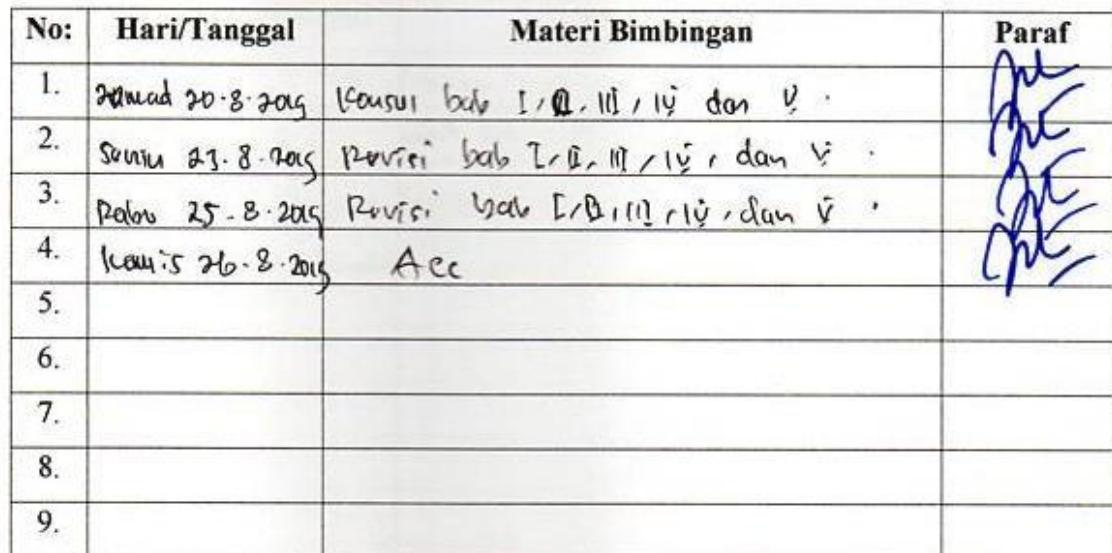 No: Hari/Tanggal Materi Bimbingan Paraf
1. 20.8.2019 Konsul bab I, II, III, IV dan V.
2. Senin 23.8.2019 Revisi bab I, II, III, IV, dan V.
3. Rabu 25-8-2019 Revisi bab I, II, III, IV, dan V.
4. Kamis 26-8-2019 Acc
5.
6.
7.
8.
9.